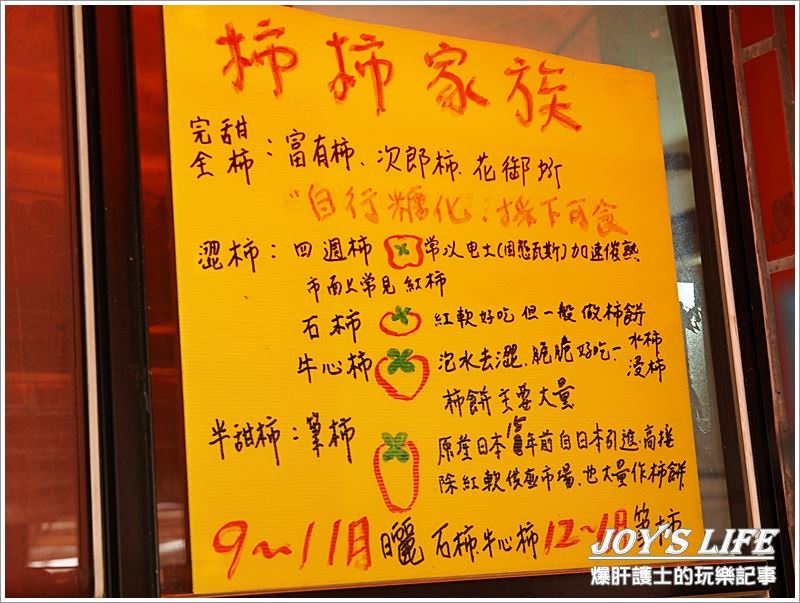 柿柿家族
完全甜柿：富有柿、次郎柿、花御所
"自行糖化"採下可食
澀柿：四週柿 常以电土(固態瓦斯)加速催熟
市面上常見紅柿
石柿 紅軟好吃 但一般做柿餅
牛心柿 泡水去澀、脆脆好吃－水柿 浸柿
柿餅主要大量
半甜柿：筆柿 原產日本 年前自日本引進、高接
除紅軟供應市場、也大量作柿餅
9～11月 日曬 石柿 牛心柿 12～1月 筆柿
JOY'S LIFE
爆肝護士的玩樂記事